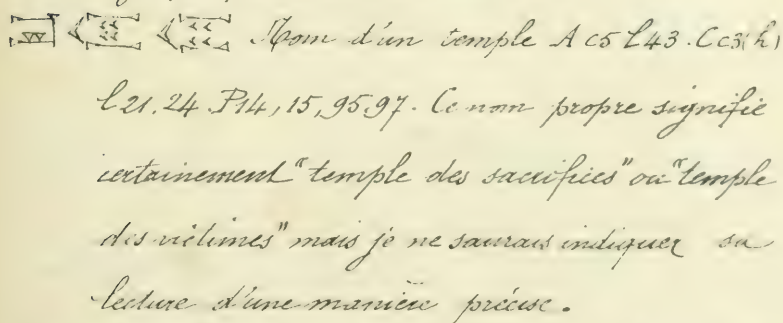 Nom d'un temple A c5 l43. C c3(h)
l21.24. P14, 15, 95.97. Ce nom propre signifie
certainement "temple des sacrifices" ou "temple
des victimes" mais je ne saurais indiquer sa
lecture d'une manière précise.